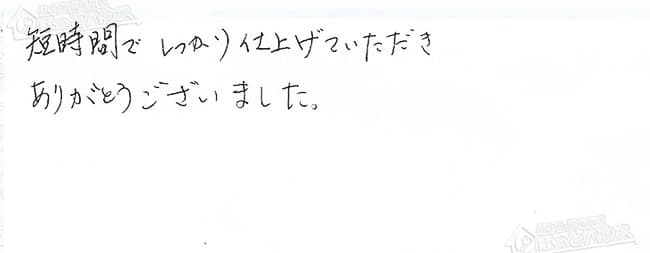 短時間で しっかり仕上げていただき
ありがとうございました。